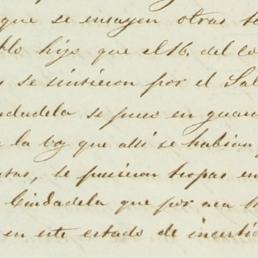 que se ensayen otras
hijo que el 16. del
se sintieron por el Sal
dadela se puso en guar
la voz que alli se habian
se pusieron tropas en
Ciudadela que por
en este estado de incertid